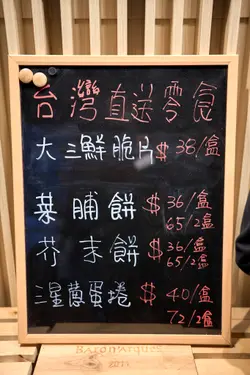 台灣直送零食
大三鮮脆片 $38/盒
菜脯餅 $36/盒
65/2盒
芥末餅 $36/盒
65/2盒
三星蔥蛋捲 $40/盒
72/2盒
BARON'ARQUES
2011